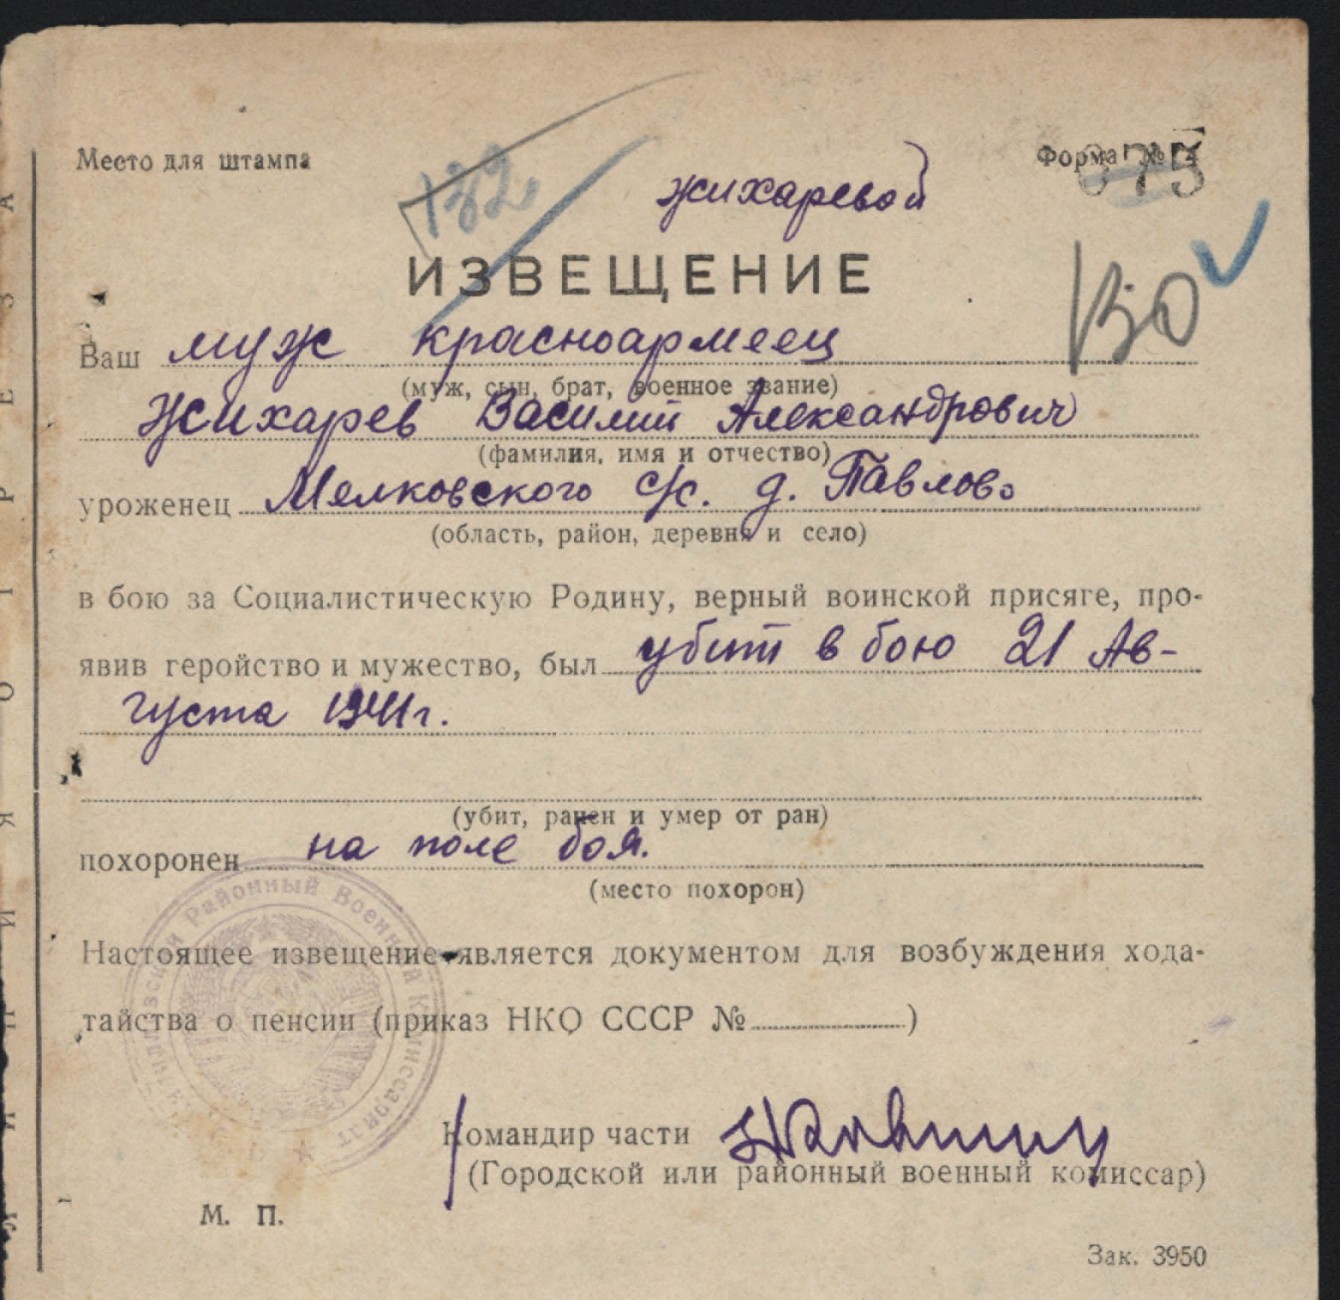 Место для штампа
Форма №
375
132
Жихаревой
ИЗВЕЩЕНИЕ
Ваш муж красноармеец
(муж, сын, брат, военное звание)
Жихарев Василий Александрович
(фамилия, имя и отчество)
уроженец Мелковского с/с. д. Павлово
(область, район, деревня и село)
в бою за Социалистическую Родину, верный воинской присяге, про-
явив геройство и мужество, был убит в бою 21 Ав-
густа 1941г.
(убит, ранен и умер от ран)
похоронен на поле боя.
(место похорон)
Настоящее извещение является документом для возбуждения хода-
тайства о пенсии (приказ НКО СССР № )
Районный Военный Комиссариат
Командир части
(Городской или районный военный комиссар)
М. П.
Зак. 3950
ЛИНИЯ ОТРЕЗА